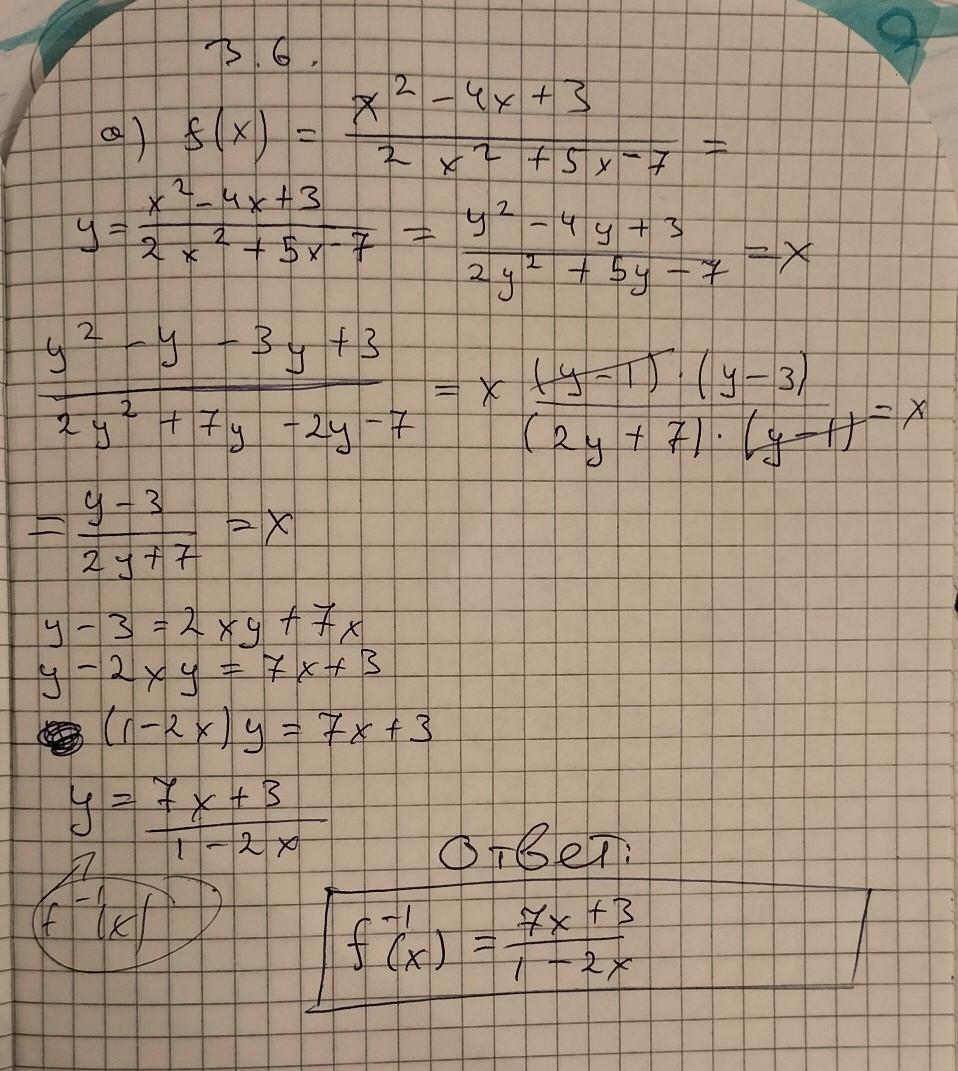 3.6.
a) f(x) = \frac{x^2 - 4x + 3}{2x^2 + 5x - 7} =
y = \frac{x^2 - 4x + 3}{2x^2 + 5x - 7} = \frac{y^2 - 4y + 3}{2y^2 + 5y - 7} = x
\frac{y^2 - y - 3y + 3}{2y^2 + 7y - 2y - 7} = x \frac{(y-1) \cdot (y-3)}{(2y+7) \cdot (y-1)} = x
= \frac{y-3}{2y+7} = x
y - 3 = 2xy + 7x
y - 2xy = 7x + 3
(1 - 2x)y = 7x + 3
y = \frac{7x + 3}{1 - 2x}
f^{-1}(x)
Ответ:
f^{-1}(x) = \frac{7x + 3}{1 - 2x}